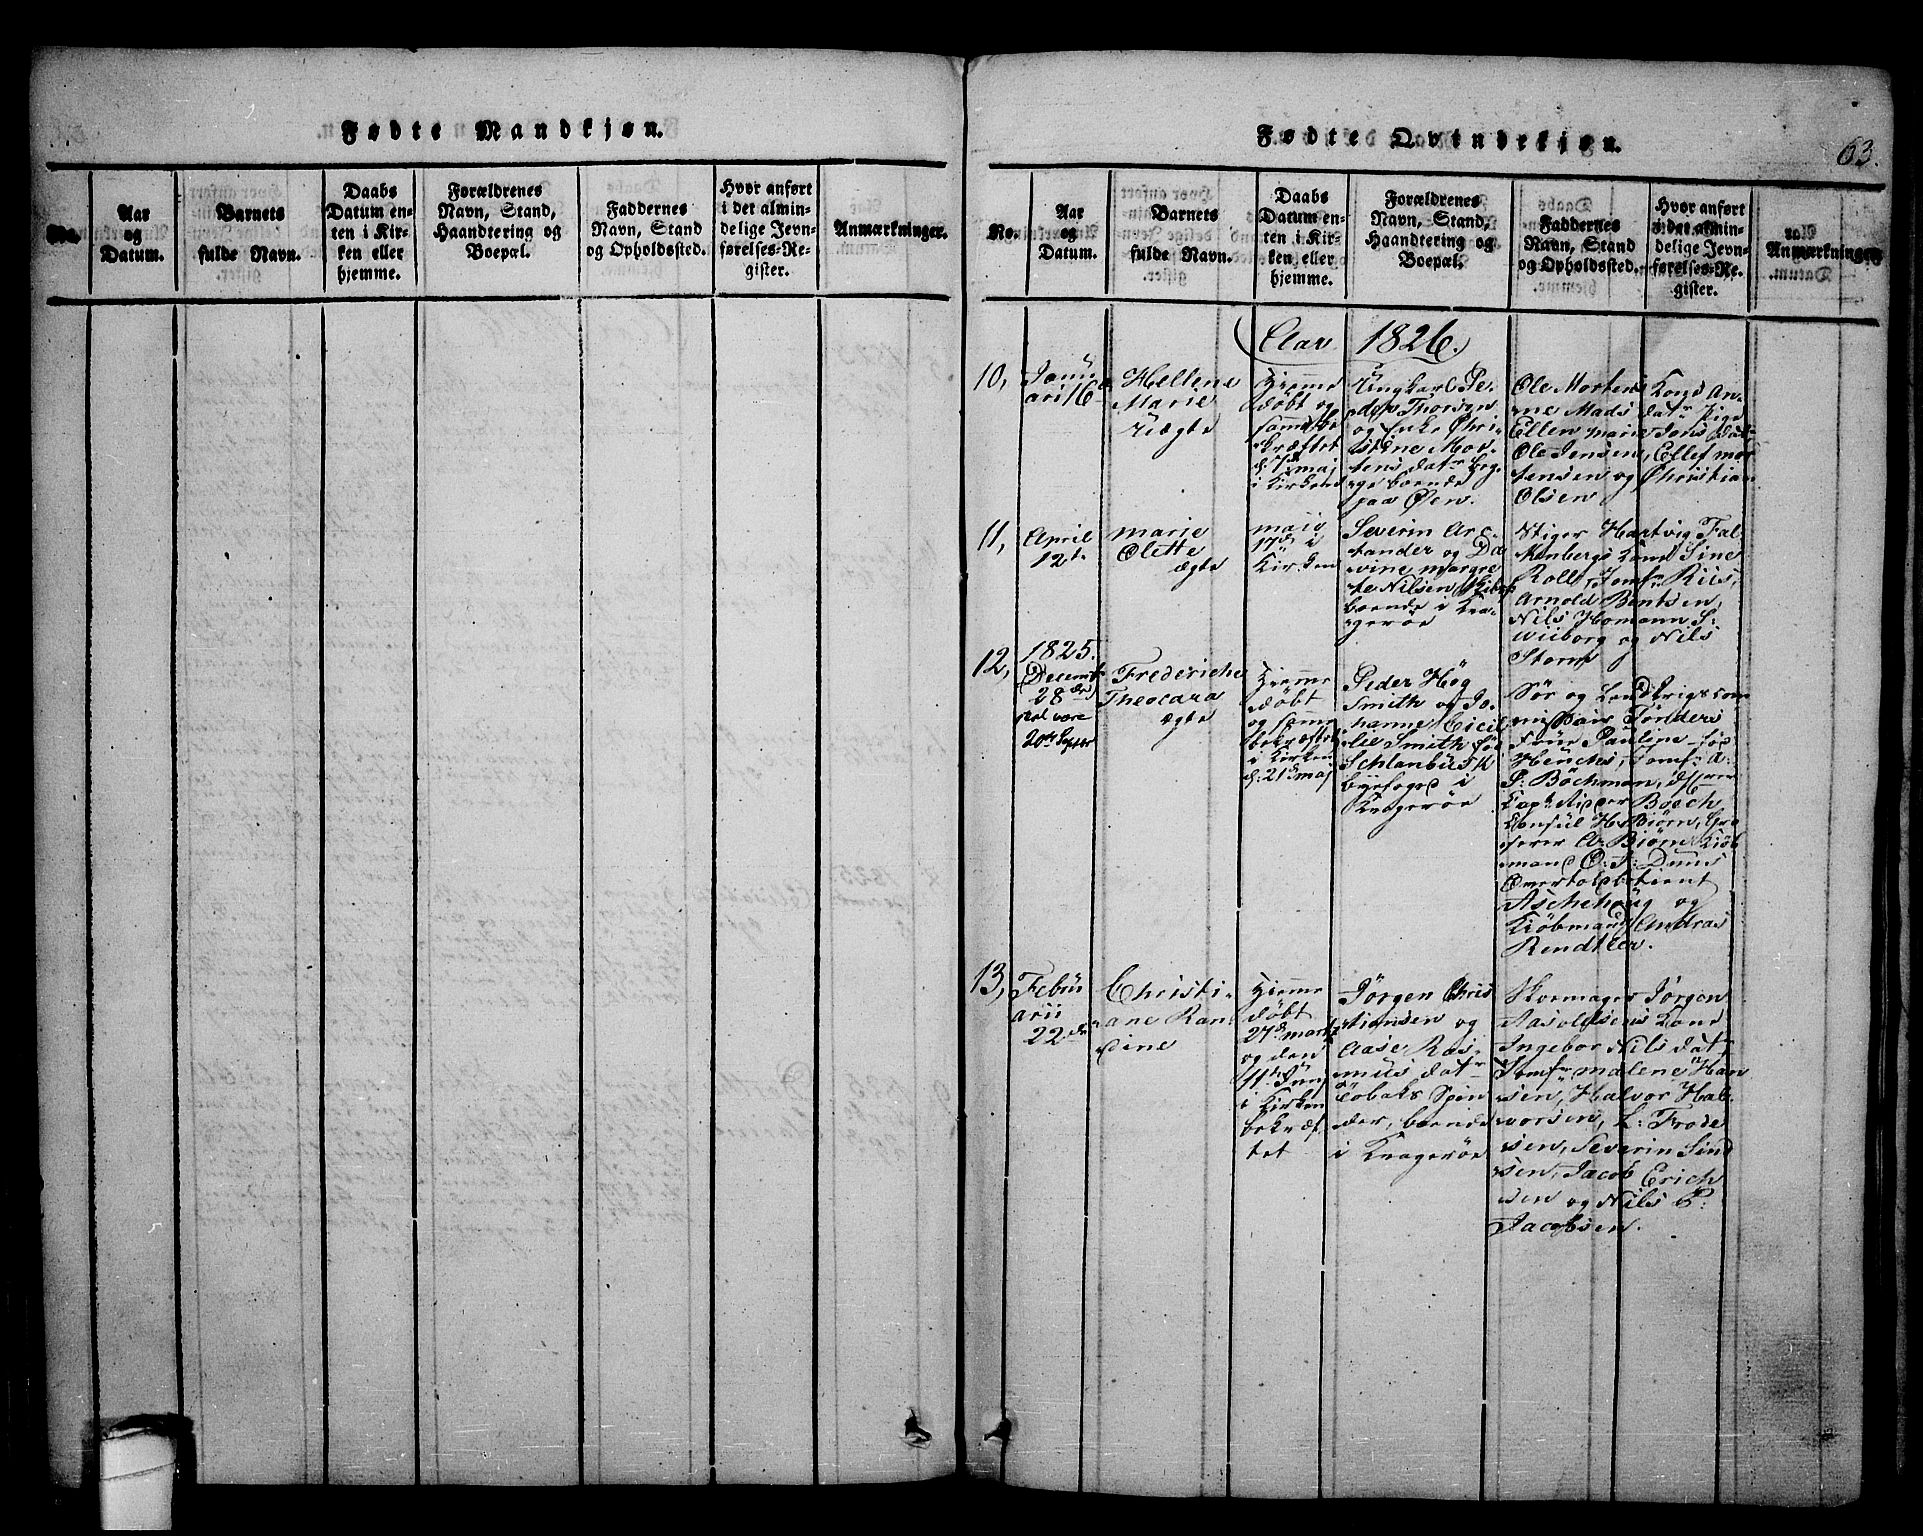 Fødte Mandkjøn.
No.
Aar
og
Datum.
Barnets
fulde Navn.
Daabs
Datum en-
ten i Kir-
ken eller
hjemme.
Forældrenes
Navn, Stand,
Haandtering og
Boepæl.
Faddernes
Navn, Stand
og Opholdssted.
Hvor anført
i det almin-
delige Jevn-
førelses-Re-
gister.
Anmærkninger.
Fødte Qvindekjøn.
63.
No.
Aar
og
Datum.
Barnets
fulde Navn.
Daabs
Datum en-
ten i Kir-
ken eller
hjemme.
Forældrenes
Navn, Stand,
Haandtering og
Boepæl.
Faddernes
Navn, Stand
og Opholdssted.
Hvor anført
i det almin-
delige Jevn-
førelses-Re-
gister.
Anmærkninger
Aar 1826.
10,
Janu
arii 6
Hellene
Marie
Uægte
Hiemme
døbt og
samme be
kræftet
d: 7d maj
i Kirken
Ungkarl Pe-
der Thorsen
og Enke Chri-
stine Mor-
tens datr begge boende
paa Øen.
Ole Mortens Kond An-
ne Mads datr Pige
Ellen Marie Jens dat
Ole Jensen, Ellef mor
tensen og Christian
Olsen
11,
April
12te
Marie
Olette
ægte
maio
17d i
Kirken
Severin Arc-
tander og Da
vine margre
te Nilsen
boende i Kra-
gerøe
Stiger Hartvig Fal
kenbergs Kond Sine
Roll, Jomfr Riis,
Arnold Bentsen,
Nils Homann S:
Wiborg og Nils
Storm
12,
1825.
Decemb
28de
skal være
20de Septbr
Frederiche
Theocara
ægte
Hiemme
døbt
og samme
bekræftet
i Kirken
d: 21d maj
Peder Høg
Smith og Jo
hanne Cicil
lie Smith fød
Schlanbusk
byefoged i
Kragerøe
Sør og Lendrigscom
missair Tønders
Frue Pauline fød
Henchel, Jomfr A.
P: Böchman,
Capt: Boech
Consul H. Biørn,
A. Biørn Kiøb
mand O: F: Duus
Overtoldbetient
Aschehoug og
Kiöbmand Andreas
Rendtler.
13,
Febru
arii
22de
Christi-
ane Ran-
dine
Hiemme
døbt
27d marts
og den
11te Junj
i Kirken
bekræf
tet
Jørgen Chris
tiansen og
Aase Ras-
mus datr
Tobaks Spin
der, boende
i Kragerøe
Skomager Jørgen
Aasoldsens Kone
Ingebor Nils datr
Jomfr malene Han
sen, Halvor Hal-
vorsen, L: Frode
sen, Severin Sind
sen, Jacob Erich
sen og Nils P:
Jacobsen.